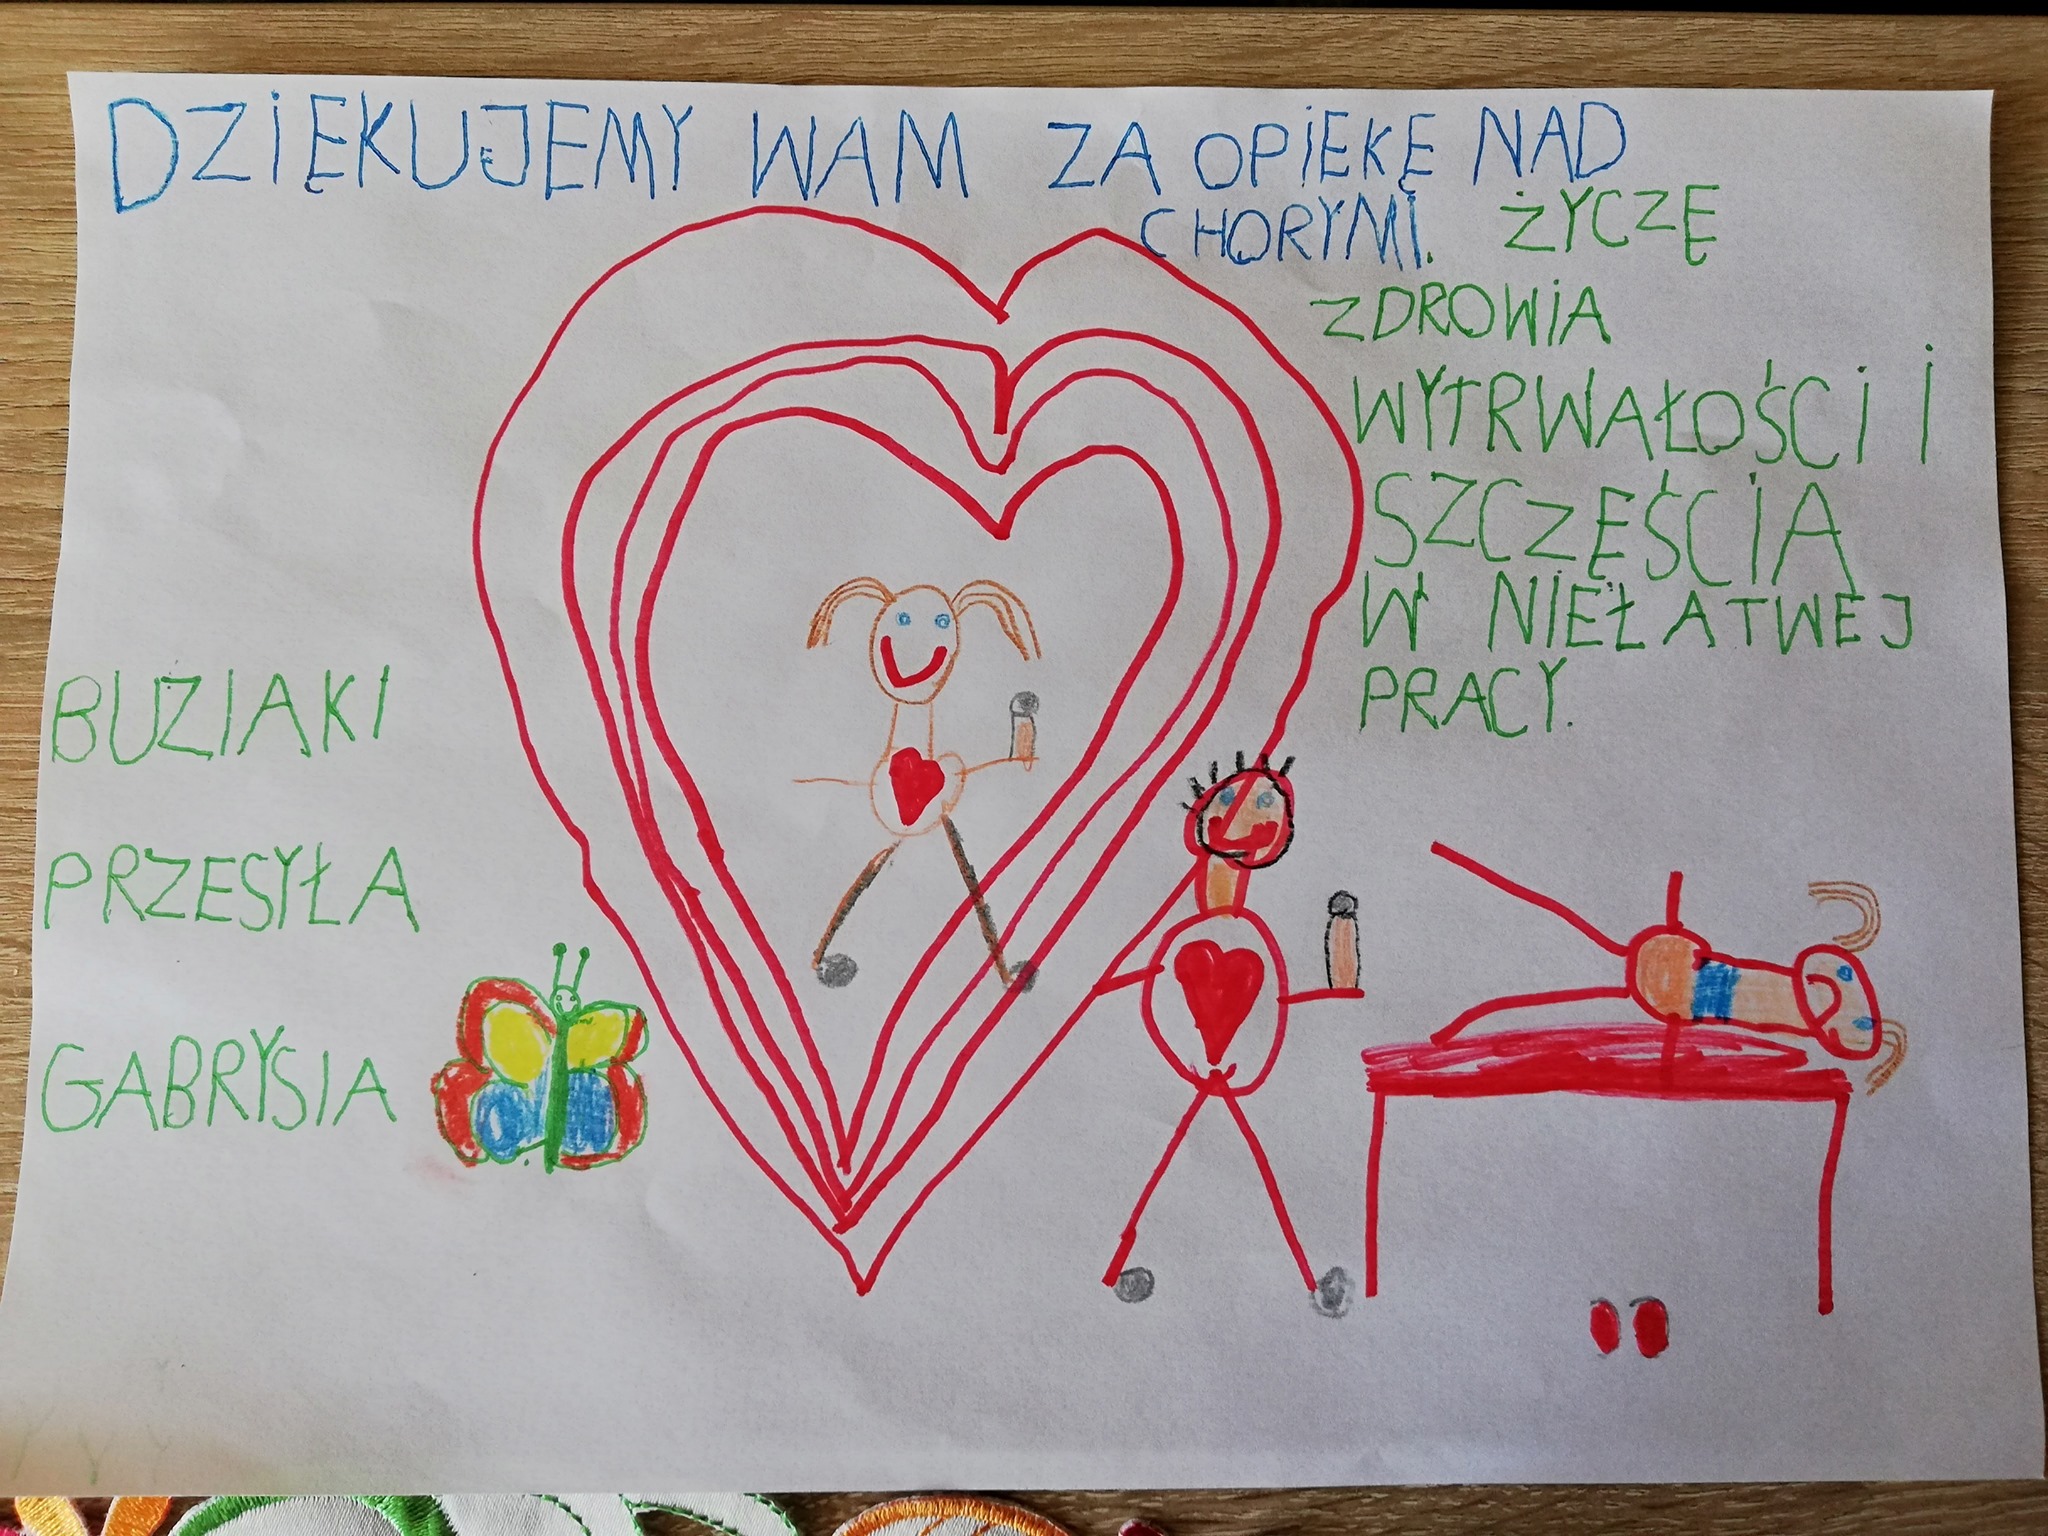 DZiĘKUJEMY WAM ZA OPiEKĘ NAD
CHORYMi. ŻYCZĘ
ZDROWiA
WYTRWAŁOŚCi i
SZCZĘŚCiA
W NIEŁATWEJ
PRACY.
BUZIAKI
PRZESYŁA
GABRYSIA